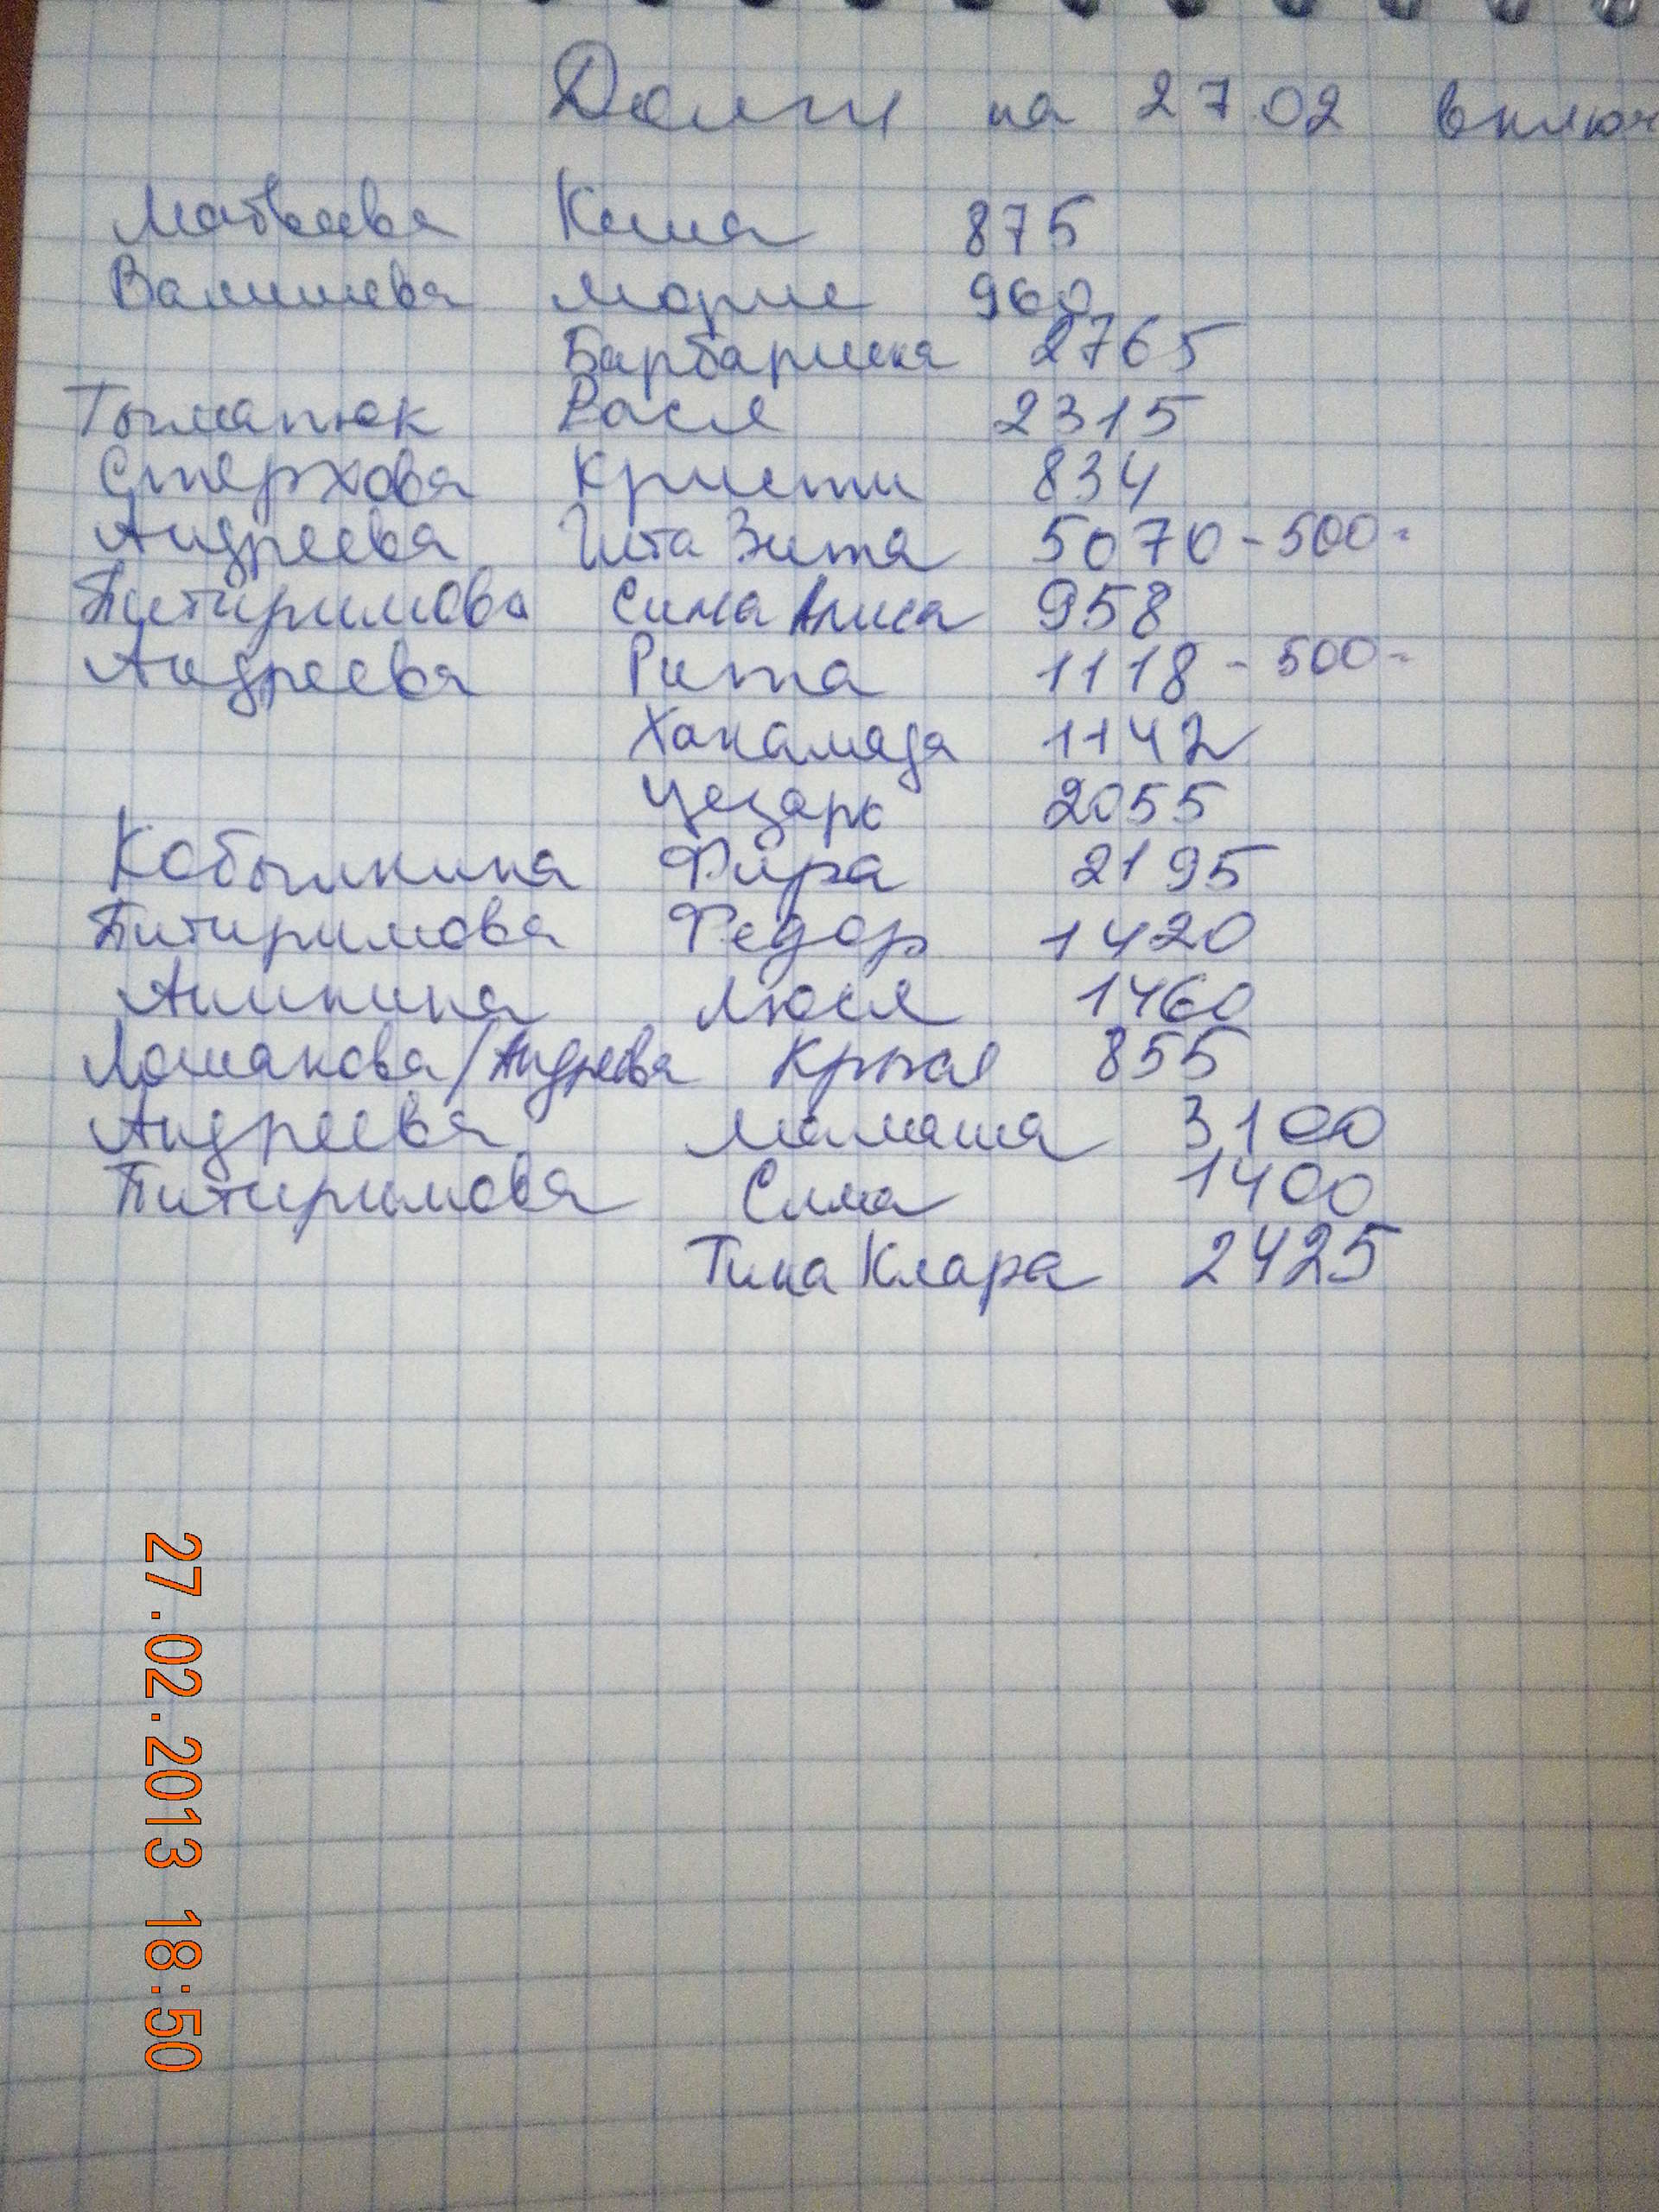 Долги на 27.02 включ
Матвеева Кеша 875
Валишева Морис 960
Барбариска 2765
Толмачюк Вася 2315
Стерхова Кристи 834
Андреева Гита Зита 5070 - 500=
Питиримова Сима Алиса 958
Андреева Рита 1118 - 500=
Хакамада 1142
Цезарь 2055
Кобылкина Фира 2195
Питиримова Федор 1420
Аникина Люся 1460
Ломакова/Андреева Крыся 855
Андреева Мамаша 3100
Питиримова Сима 1400
Тина Клара 2425
27.02.2013 18:50